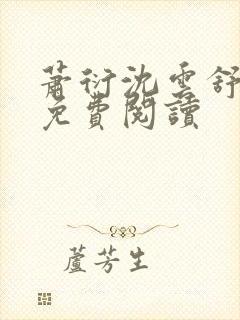 蕭衍沈雲舒
免費閱讀
蘆芳生